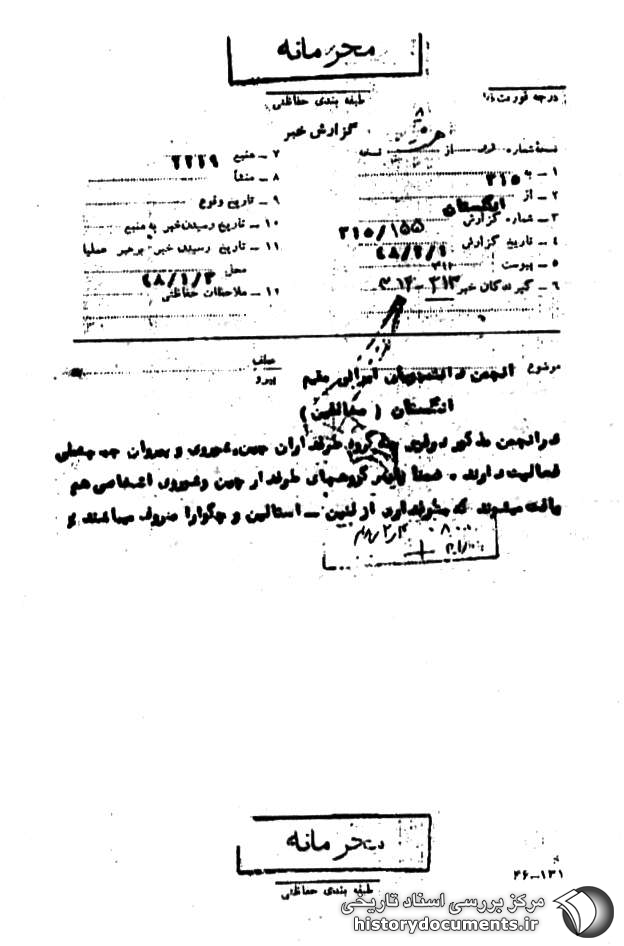 محرمانه
طبقه بندی حفاظتی
درجه فوریت
گزارش خبر
نسخه شماره از نسخه
۱ ــ به ۳۱۵
۲ ــ از انگلستان
۳ ــ شماره گزارش ۳۱۵/۱۵۵
۴ ــ تاریخ گزارش ۴۸/۲/۱
۵ ــ پیوست
۶ ــ گیرندگان خبر ۳۱۲ ۳۱۳
۷ ــ منبع ۲۲۲۹
۸ ــ منشأ
۹ ــ تاریخ وقوع
۱۰ ــ تاریخ رسیدن خبر به منبع
۱۱ ــ تاریخ رسیدن خبر برهبر عملیات
محل ۴۸/۱/۳
۱۲ ــ ملاحظات حفاظتی
موضوع انجمن دانشجویان ایرانی مقیم
انگلستان (مخالفین)
عطف
پیرو
در انجمن مذکور گروه طرفداران چین، شوروی و پیروان جبهه ملی
فعالیت دارند. ضمناً گروههای طرفدار چین و شوروی اشخاصی هم
یافت میشوند که از لنین ــ استالین و چگوارا میباشند و
محرمانه
طبقه بندی حفاظتی
۴۶-۱۳۱
مرکز بررسی اسناد تاریخی
historydocuments.ir